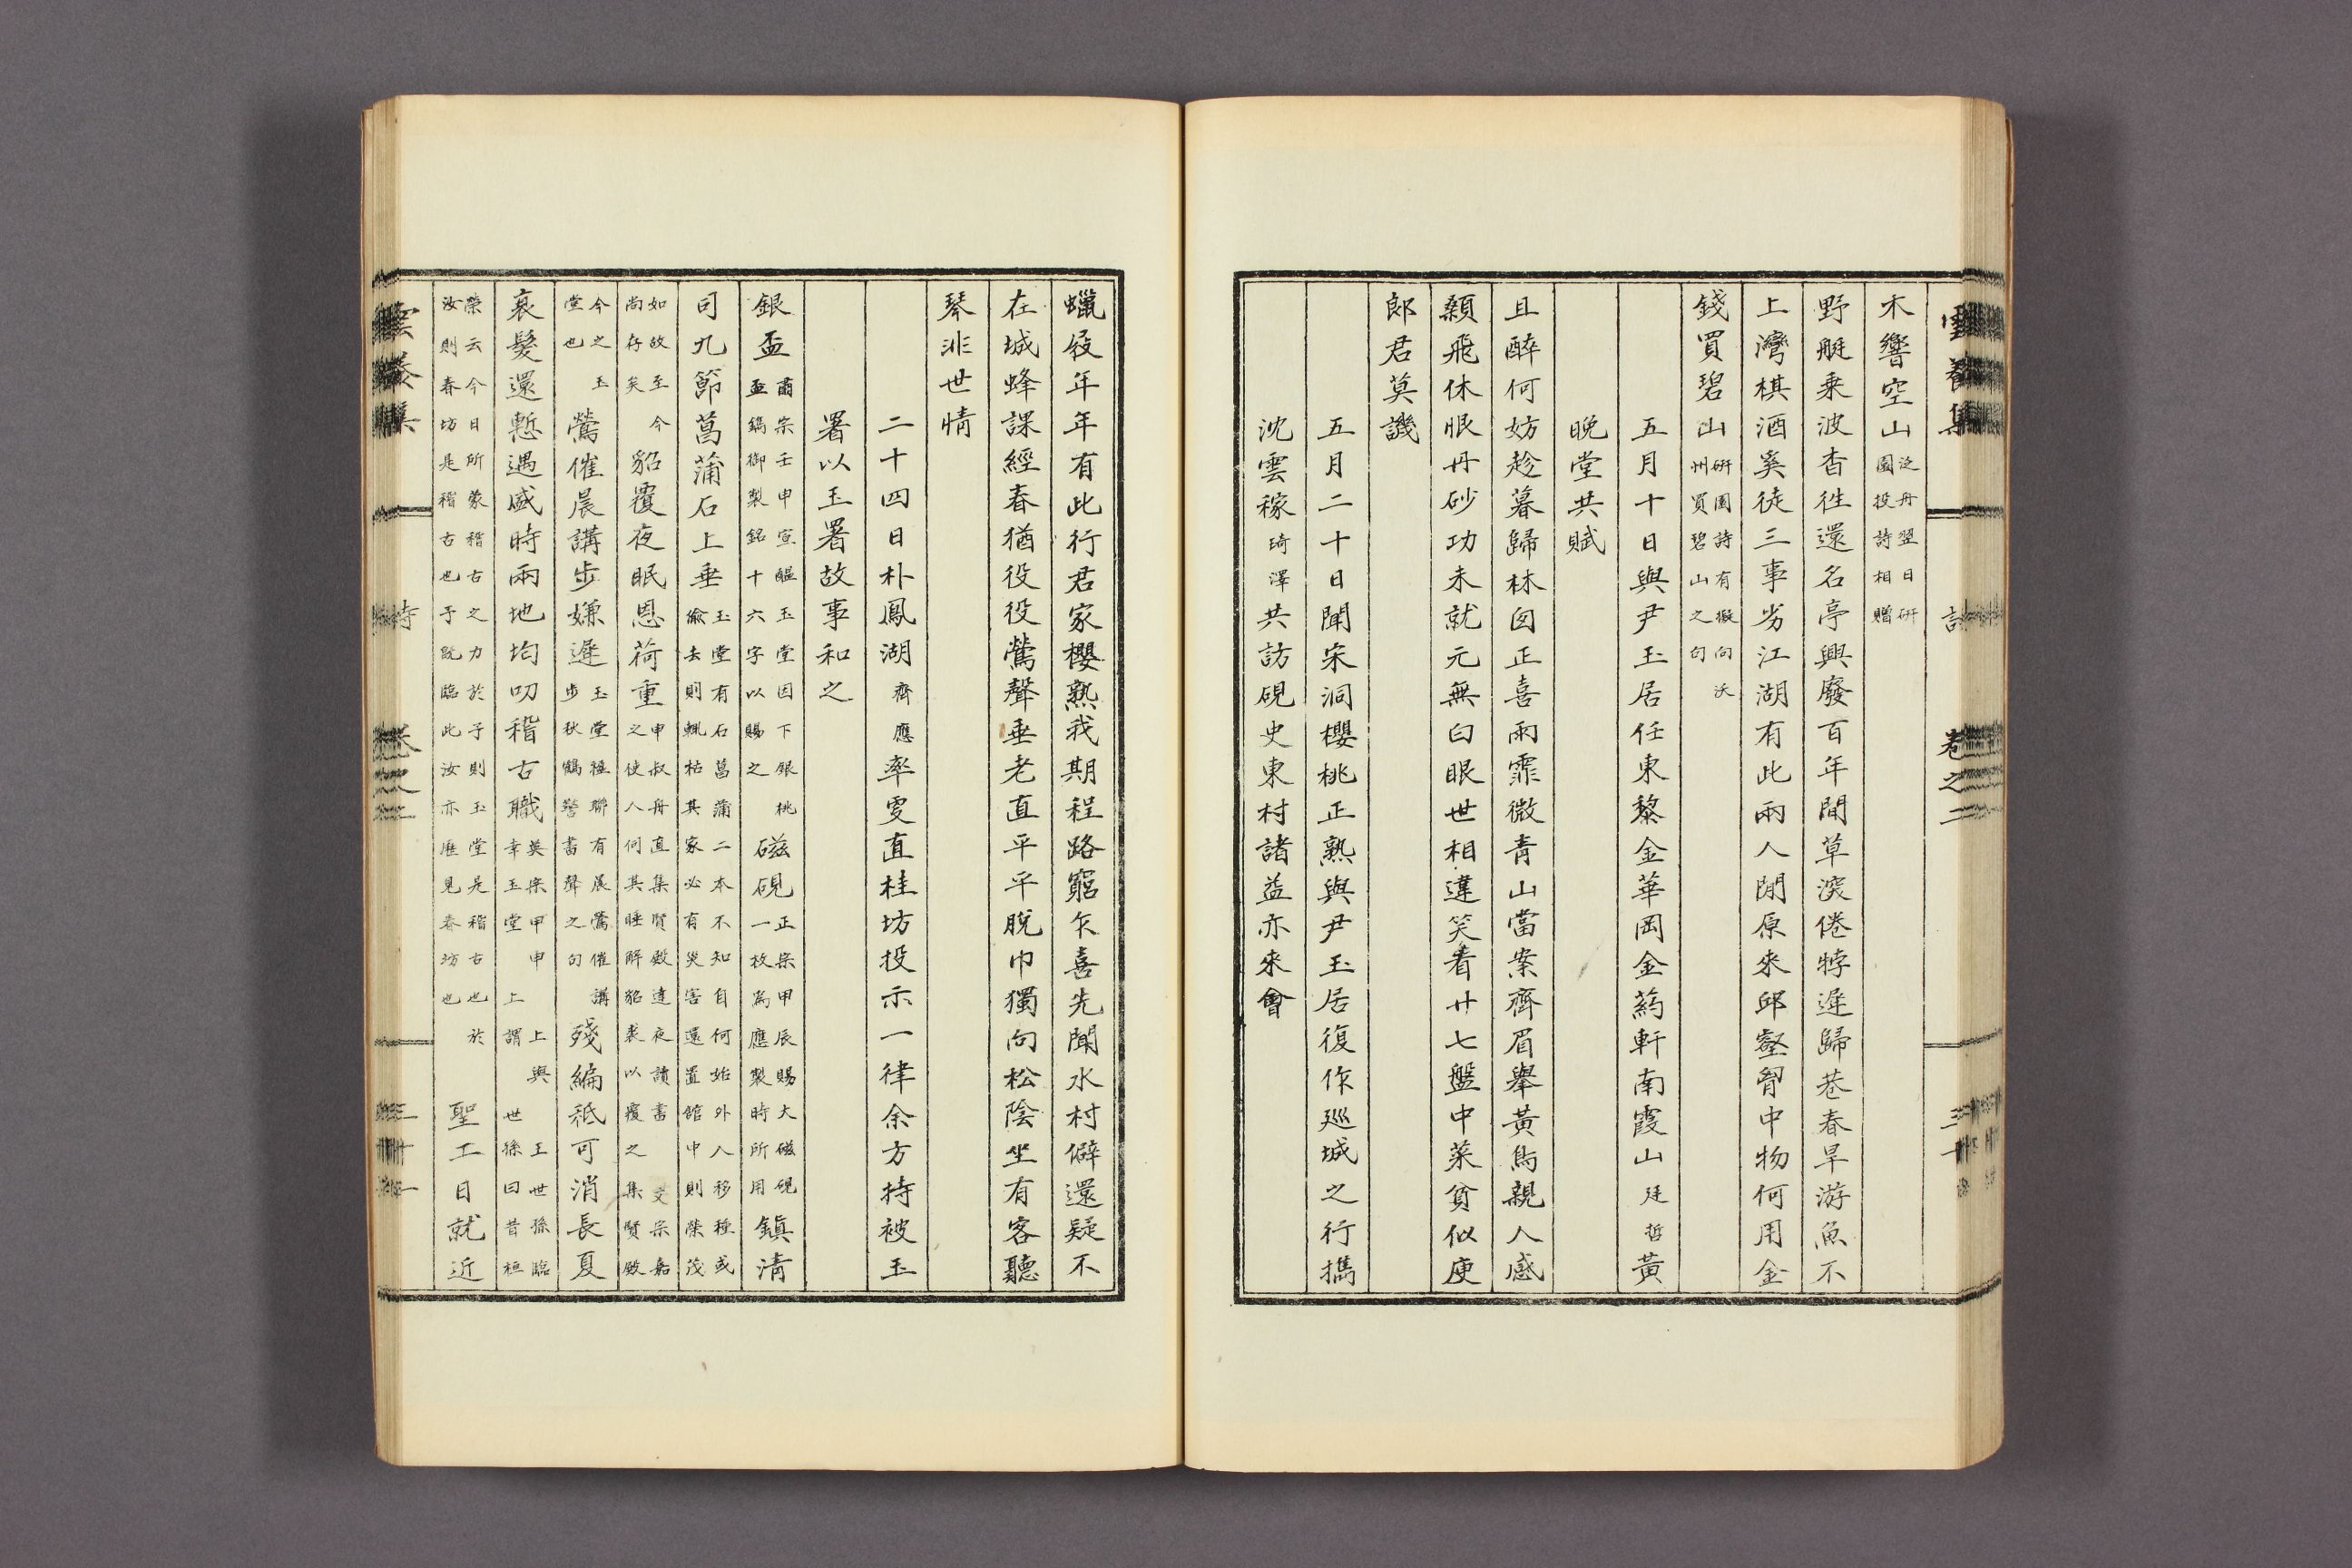 雲養集 詩 卷之二 三十
木響空山泛舟翌日硏園投詩相贈
野艇乘波杳徃還名亭興廢百年間草深倦㹀遲歸巷春旱游魚不
上灣棋酒奚徒三事劣江湖有此兩人閒原來邱壑胷中物何用金
錢買碧山硏園詩有擬向沃州買碧山之句
五月十日與尹玉居任東黎金華岡金葯軒南霞山廷哲黃
晩堂共賦
且醉何妨趁暮歸林囱正喜雨霏微靑山當案齊眉擧黃鳥親人感
顙飛休恨丹砂功未就元無白眼世相違笑看廿七盤中菜貧似庾
郞君莫譏
五月二十日聞宋洞櫻桃正熟與尹玉居復作巡城之行携
沈雲稼琦澤共訪硯史東村諸益亦來會
蠟屐年年有此行君家櫻熟我期程路窮乍喜先聞水村僻還疑不
在城蜂課經春猶役役鶯聲垂老直平平脫巾獨向松陰坐有客聽
琴非世情
二十四日朴鳳湖齊應率叓直桂坊投示一律余方持被玉
署以玉署故事和之
銀盃肅宗壬申宣醞玉堂因下銀桃盃鐫御製銘十六字以賜之磁硯正宗甲辰賜大磁硯一枚爲應製時所用鎭淸
司九節菖蒲石上垂玉堂有石菖蒲二本不知自何始外人移種或偸去則輒枯其家必有災害還置館中則榮茂
如故至今尚存矣貂覆夜眠恩荷重申叔舟直集賢殿達夜讀書文宗嘉之使人伺其睡解貂裘以覆之集賢殿
今之玉堂也鶯催晨講步嫌遲玉堂楹聯有晨鶯催講步秋鶴警書聲之句殘編秪可消長夏
衰髮還慙遇盛時兩地均叨稽古職英宗甲申上與王世孫臨幸玉堂上謂世孫曰昔桓
榮云今日所蒙稽古之力於予則玉堂是稽古也於汝則春坊是稽古也予旣臨此汝亦歷見春坊也聖工日就近
雲養集 詩 卷之二 三十一